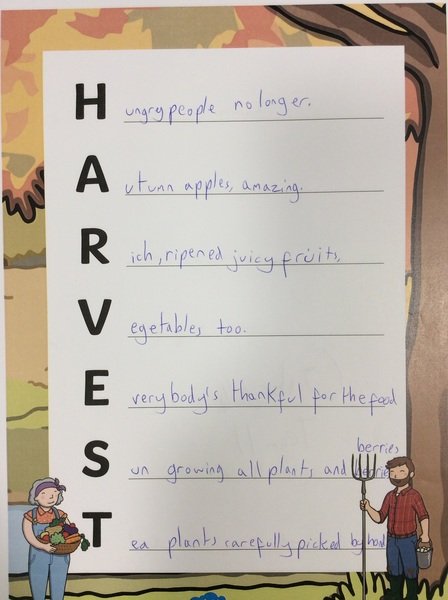 Hungry people no longer.
Autunn apples, amazing.
Rich, ripened juicy fruits,
Vegetables too.
Everybody's thankful for the food
berries
Sun growing all plants and berries
Tea plants carefully picked by hand